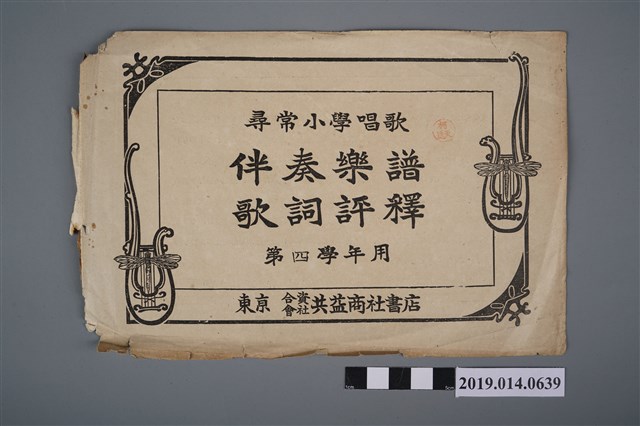 尋常小學唱歌
伴奏樂譜
歌詞評釋
第四學年用
東京 合資會社 共益商社書店
2019.014.0639